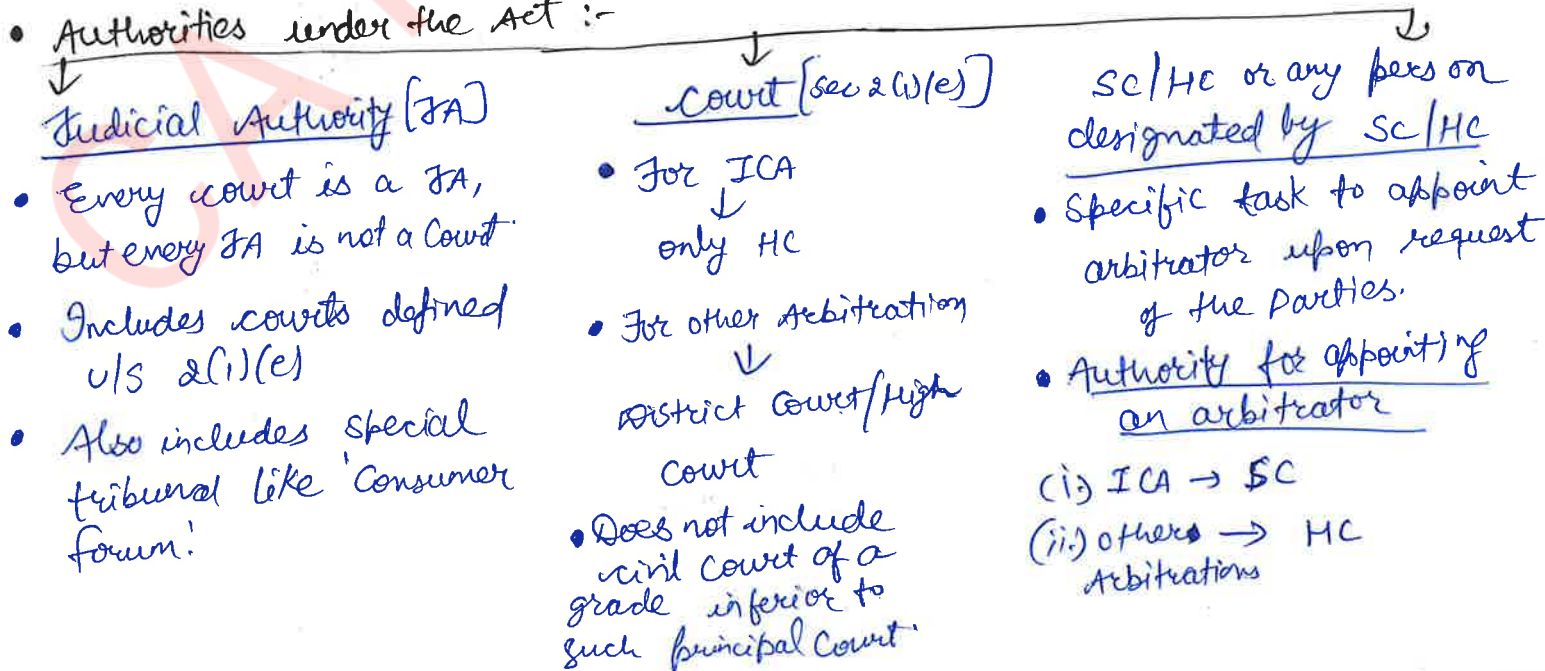 • Authorities under the Act :-
Judicial Authority [JA]
• Every court is a JA,
but every JA is not a Court.
• Includes courts defined
u/s 2(1)(e)
• Also includes special
tribunal like 'Consumer
forum'
Court [sec 2(1)(e)]
• For ICA
↓
only HC
• For other Arbitration
↓
District Court/High
Court
• Does not include
civil court of a
grade inferior to
such principal Court.
SC/HC or any person
designated by SC/HC
• Specific task to appoint
arbitrator upon request
of the Parties.
• Authority for appointing
an arbitrator
(i) ICA → SC
(ii) others → HC
Arbitrations